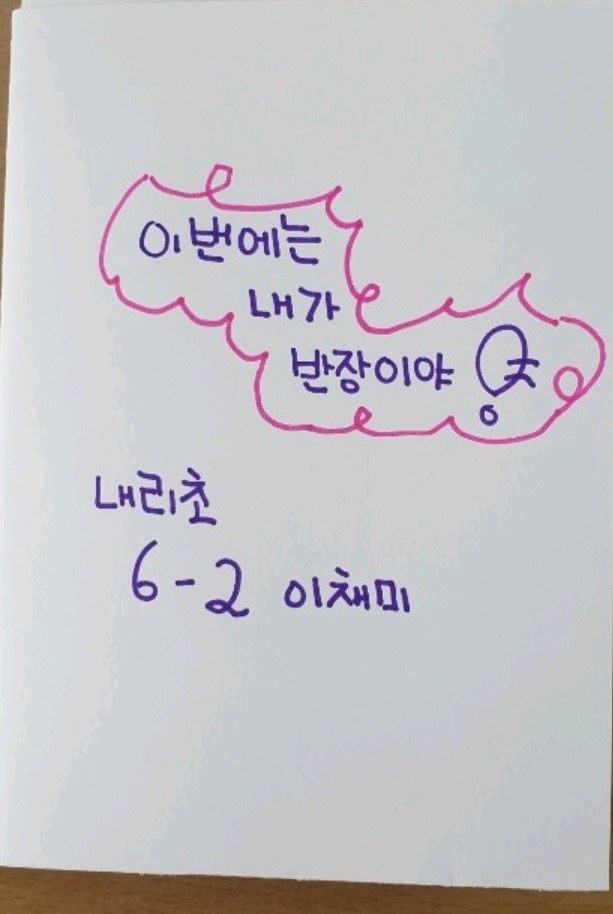 이번에는
내가
반장이야
내리초
6-2 이채미